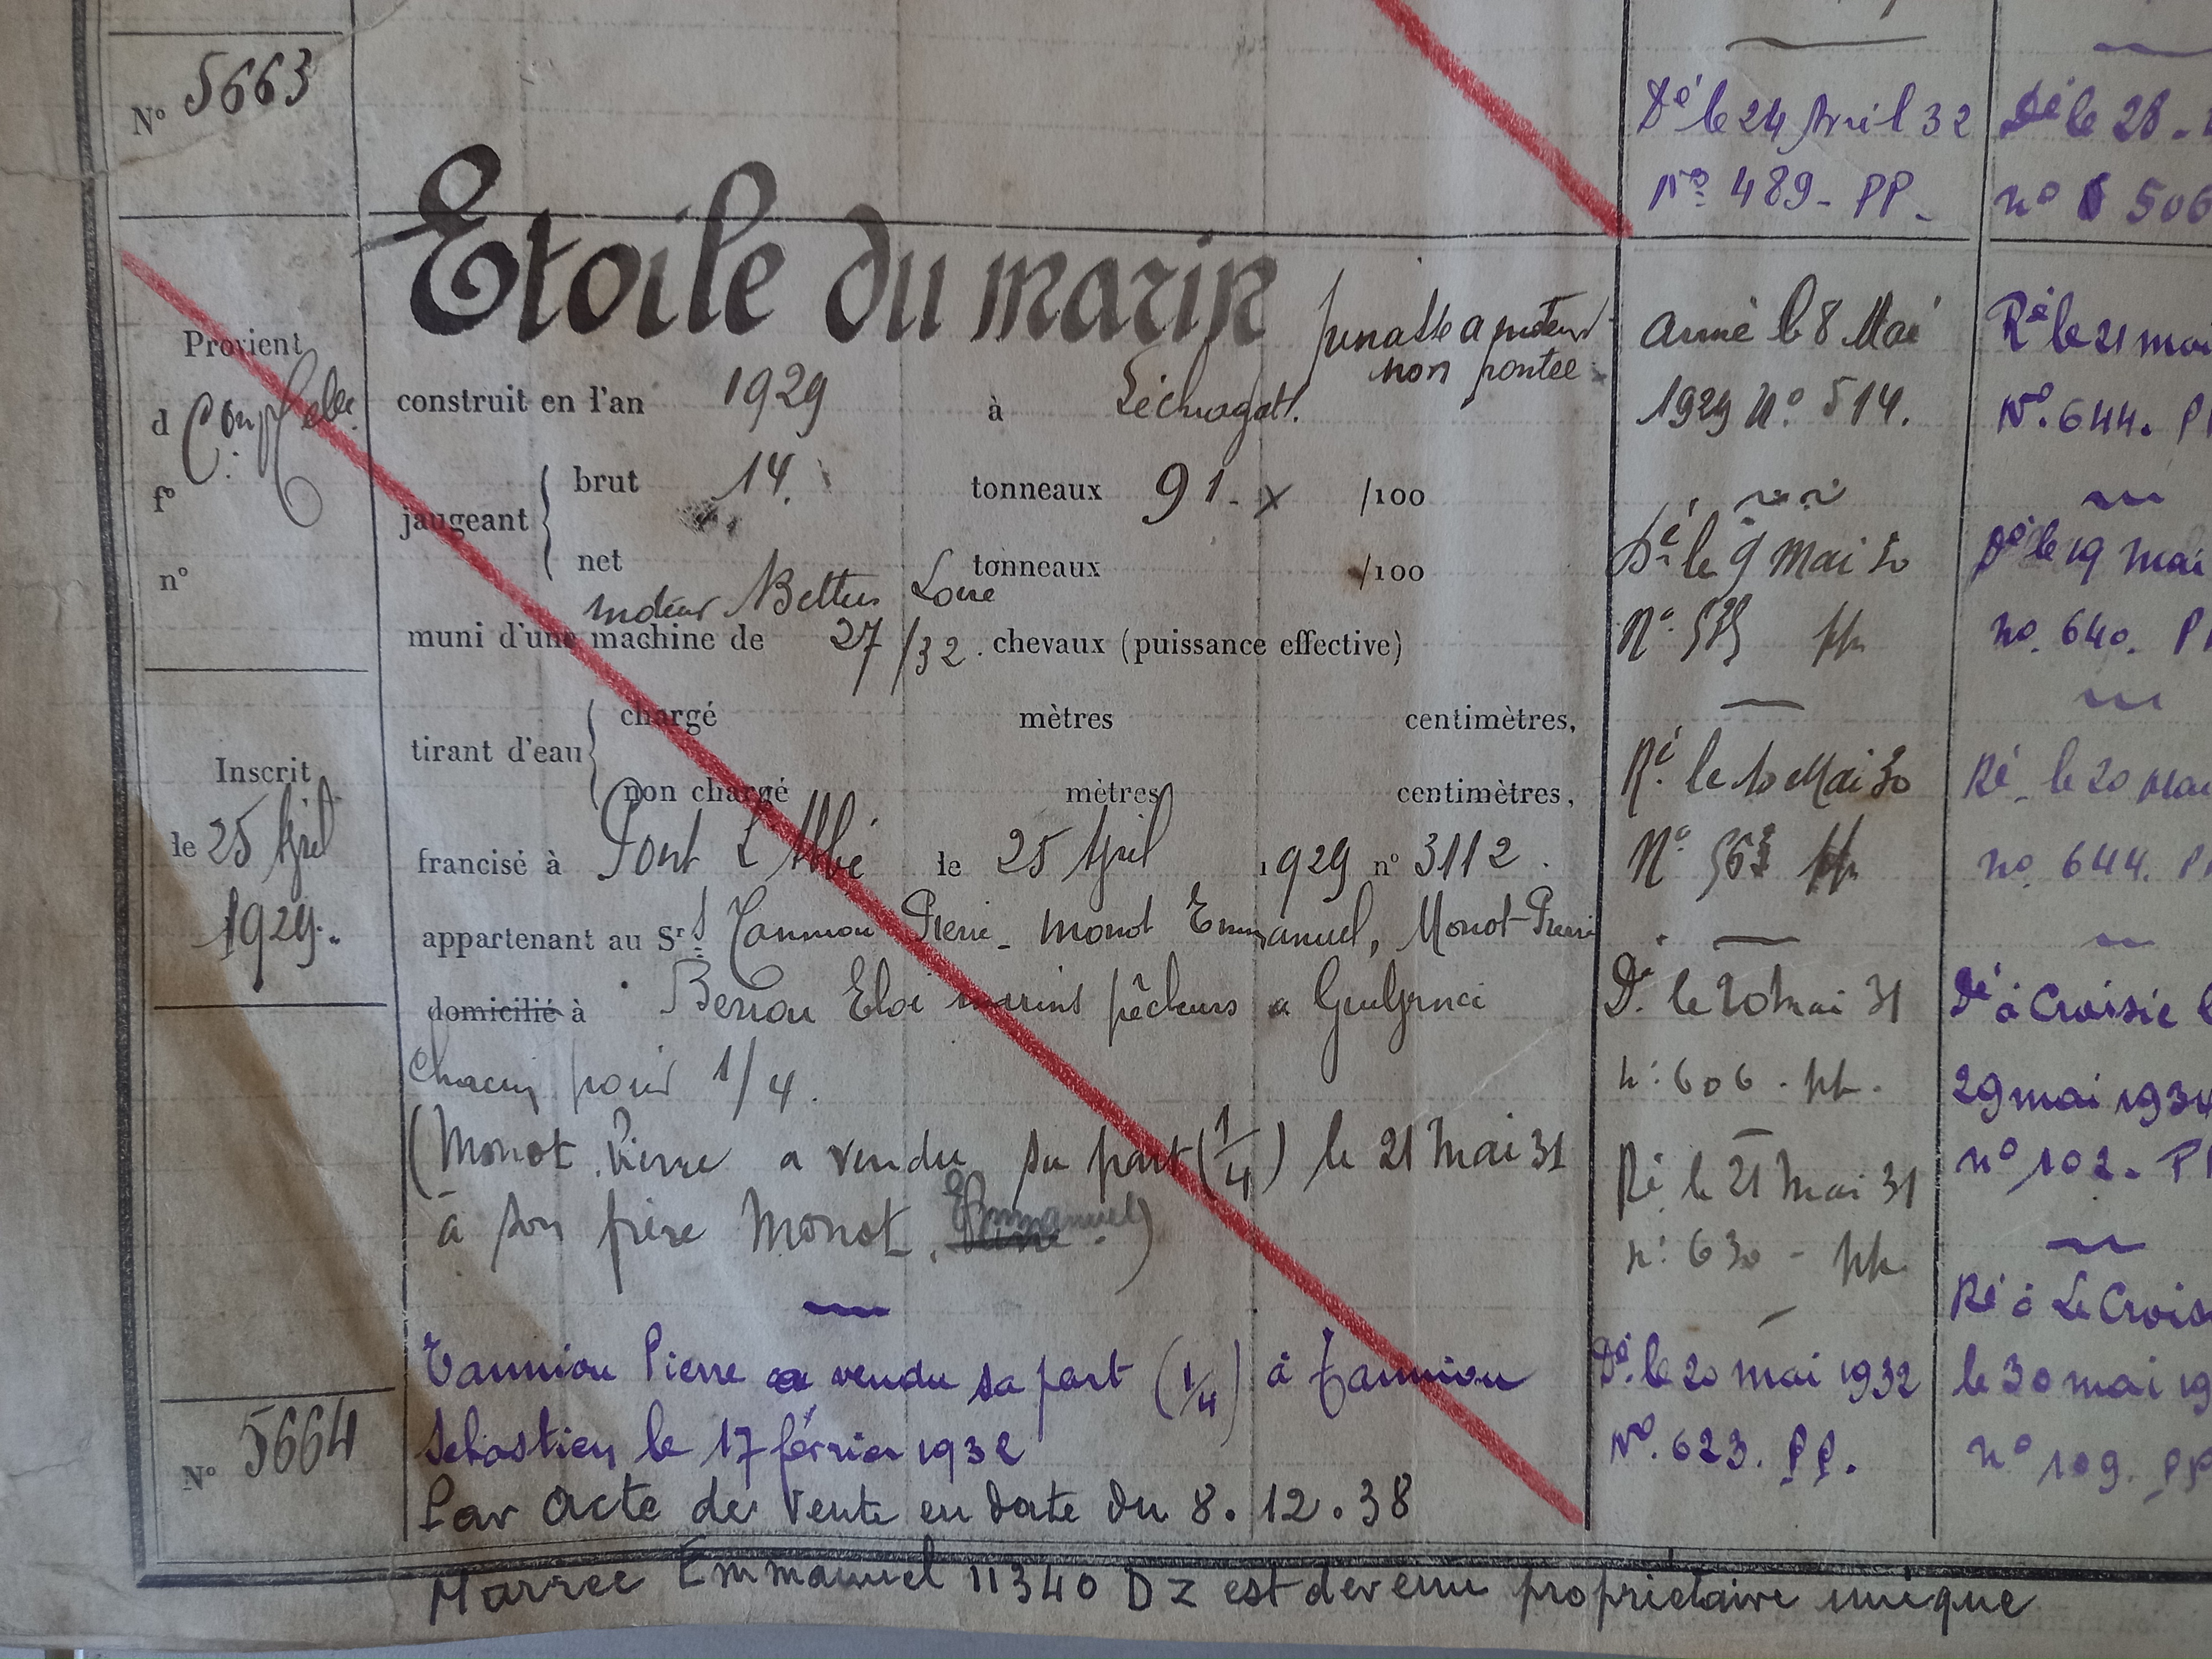 Nº 5663
Dé le 24 Avril 32
Nº 489 - PP -
Dé le 28 -
nº 506
Etoile du marin
pinasse a moteur
non pontée
Provient
d
fº
nº
construit en l'an 1929 à Léchiagat.
jaugeant
brut 14. tonneaux 91 - x /100
net tonneaux /100
moteur Bettus Loire
muni d'une machine de 27/32. chevaux (puissance effective)
tirant d'eau
chargé mètres centimètres,
non chargé mètres centimètres,
Inscrit
le 25 Avril
1929.
francisé à Pont L'Abbé le 25 Avril 1929 nº 3112.
appartenant au Sr s Tanniou Pierre - Monot Emmanuel, Monot Pierre
domicilié à Berrou Eloi marins pêcheurs a Guilvinec
chacun pour 1/4.
(Monot Pierre a vendu sa part (1/4) le 21 Mai 31
à son frère Monot. Emmanuel.)
Tanniou Pierre a vendu sa part (1/4) à Tanniou
Sebastien le 17 février 1932
Nº 5664
Par Acte de Vente en date du 8.12.38
Marrec Emmanuel 11340 DZ est devenu propriétaire unique
armé le 8 Mai
1929 nº 514.
Dé le 9 Mai 30
Nº pp
Ré le 10 Mai 30
Nº 563 pp
Dé le 20 Mai 31
nº 606 - pp.
Ré le 21 Mai 31
nº 630 - pp.
Dé le 20 mai 1932
Nº. 623. PP.
Ré le 21 mai
Nº. 644. P
Dé le 19 mai
no. 640. P
Ré le 20 Mai
no. 644. P
Dé à Croisic l
29 mai 1934
nº 102 - P
Ré à Le Crois
le 30 mai 19
nº 109. PP